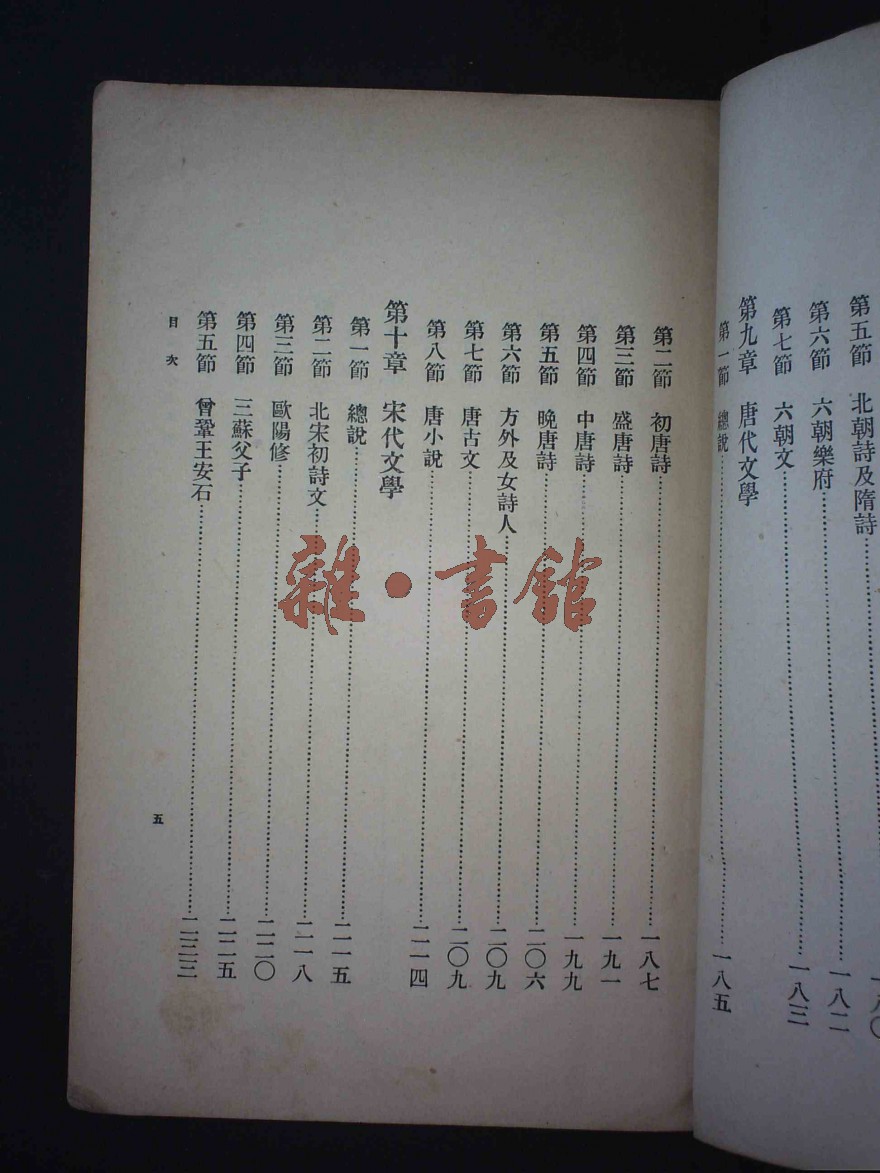 第五節 北朝詩及隋詩……一八〇
第六節 六朝樂府……一八二
第七節 六朝文……一八三
第九章 唐代文學
第一節 總說……一八五
第二節 初唐詩……一八七
第三節 盛唐詩……一九一
第四節 中唐詩……一九九
第五節 晚唐詩……二〇六
第六節 方外及女詩人……二〇九
第七節 唐古文……二〇九
第八節 唐小說……二一四
第十章 宋代文學
第一節 總說……二一五
第二節 北宋初詩文……二一八
第三節 歐陽修……二二〇
第四節 三蘇父子……二二五
第五節 曾鞏王安石……二三三
目次
五
雜•書館